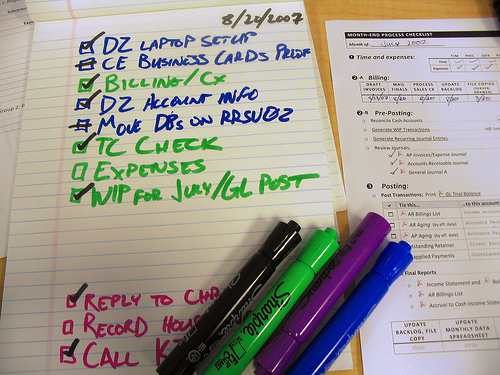 8/20/2007
DZ LAPTOP SETUP
CE BUSINESS CARDS PROOF
BILLING/CX
DZ ACCOUNT INFO
MOVE DBS ON
TC CHECK
EXPENSES
WIP FOR JULY/GL POST
REPLY TO
RECORD
CALL
Sharpie
MONTH-END PROCESS CHECKLIST
Month of: July 2007
1 Time and expenses:
TIM PHIL JEFF
Time
Expenses
2-A Billing:
DRAFT INVOICES
MAIL FINALS
PROCESS SALES CX
UPDATE BACKLOG
FILE COPIES
2-B Pre-Posting:
Reconcile Cash Accounts
Generate WIP Transactions
Generate Recurring Journal Entries
Review Journals:
AP Invoices/Expense Journal
Accounts Receivable Journal
General Journal A
3 Posting:
Post Transactions; Print GL Trial Balance
Tie this... ...to this account
AR Billings List
AR Aging (by eff. date)
AP Aging (by eff. date)
Outstanding Retainer
Applied Payments
Final Reports
Income Statement and
AR Billings List
Accrual to Cash Income
UPDATE BACKLOG, FILE COPY
UPDATE MONTHLY DATA SPREADSHEET
date date